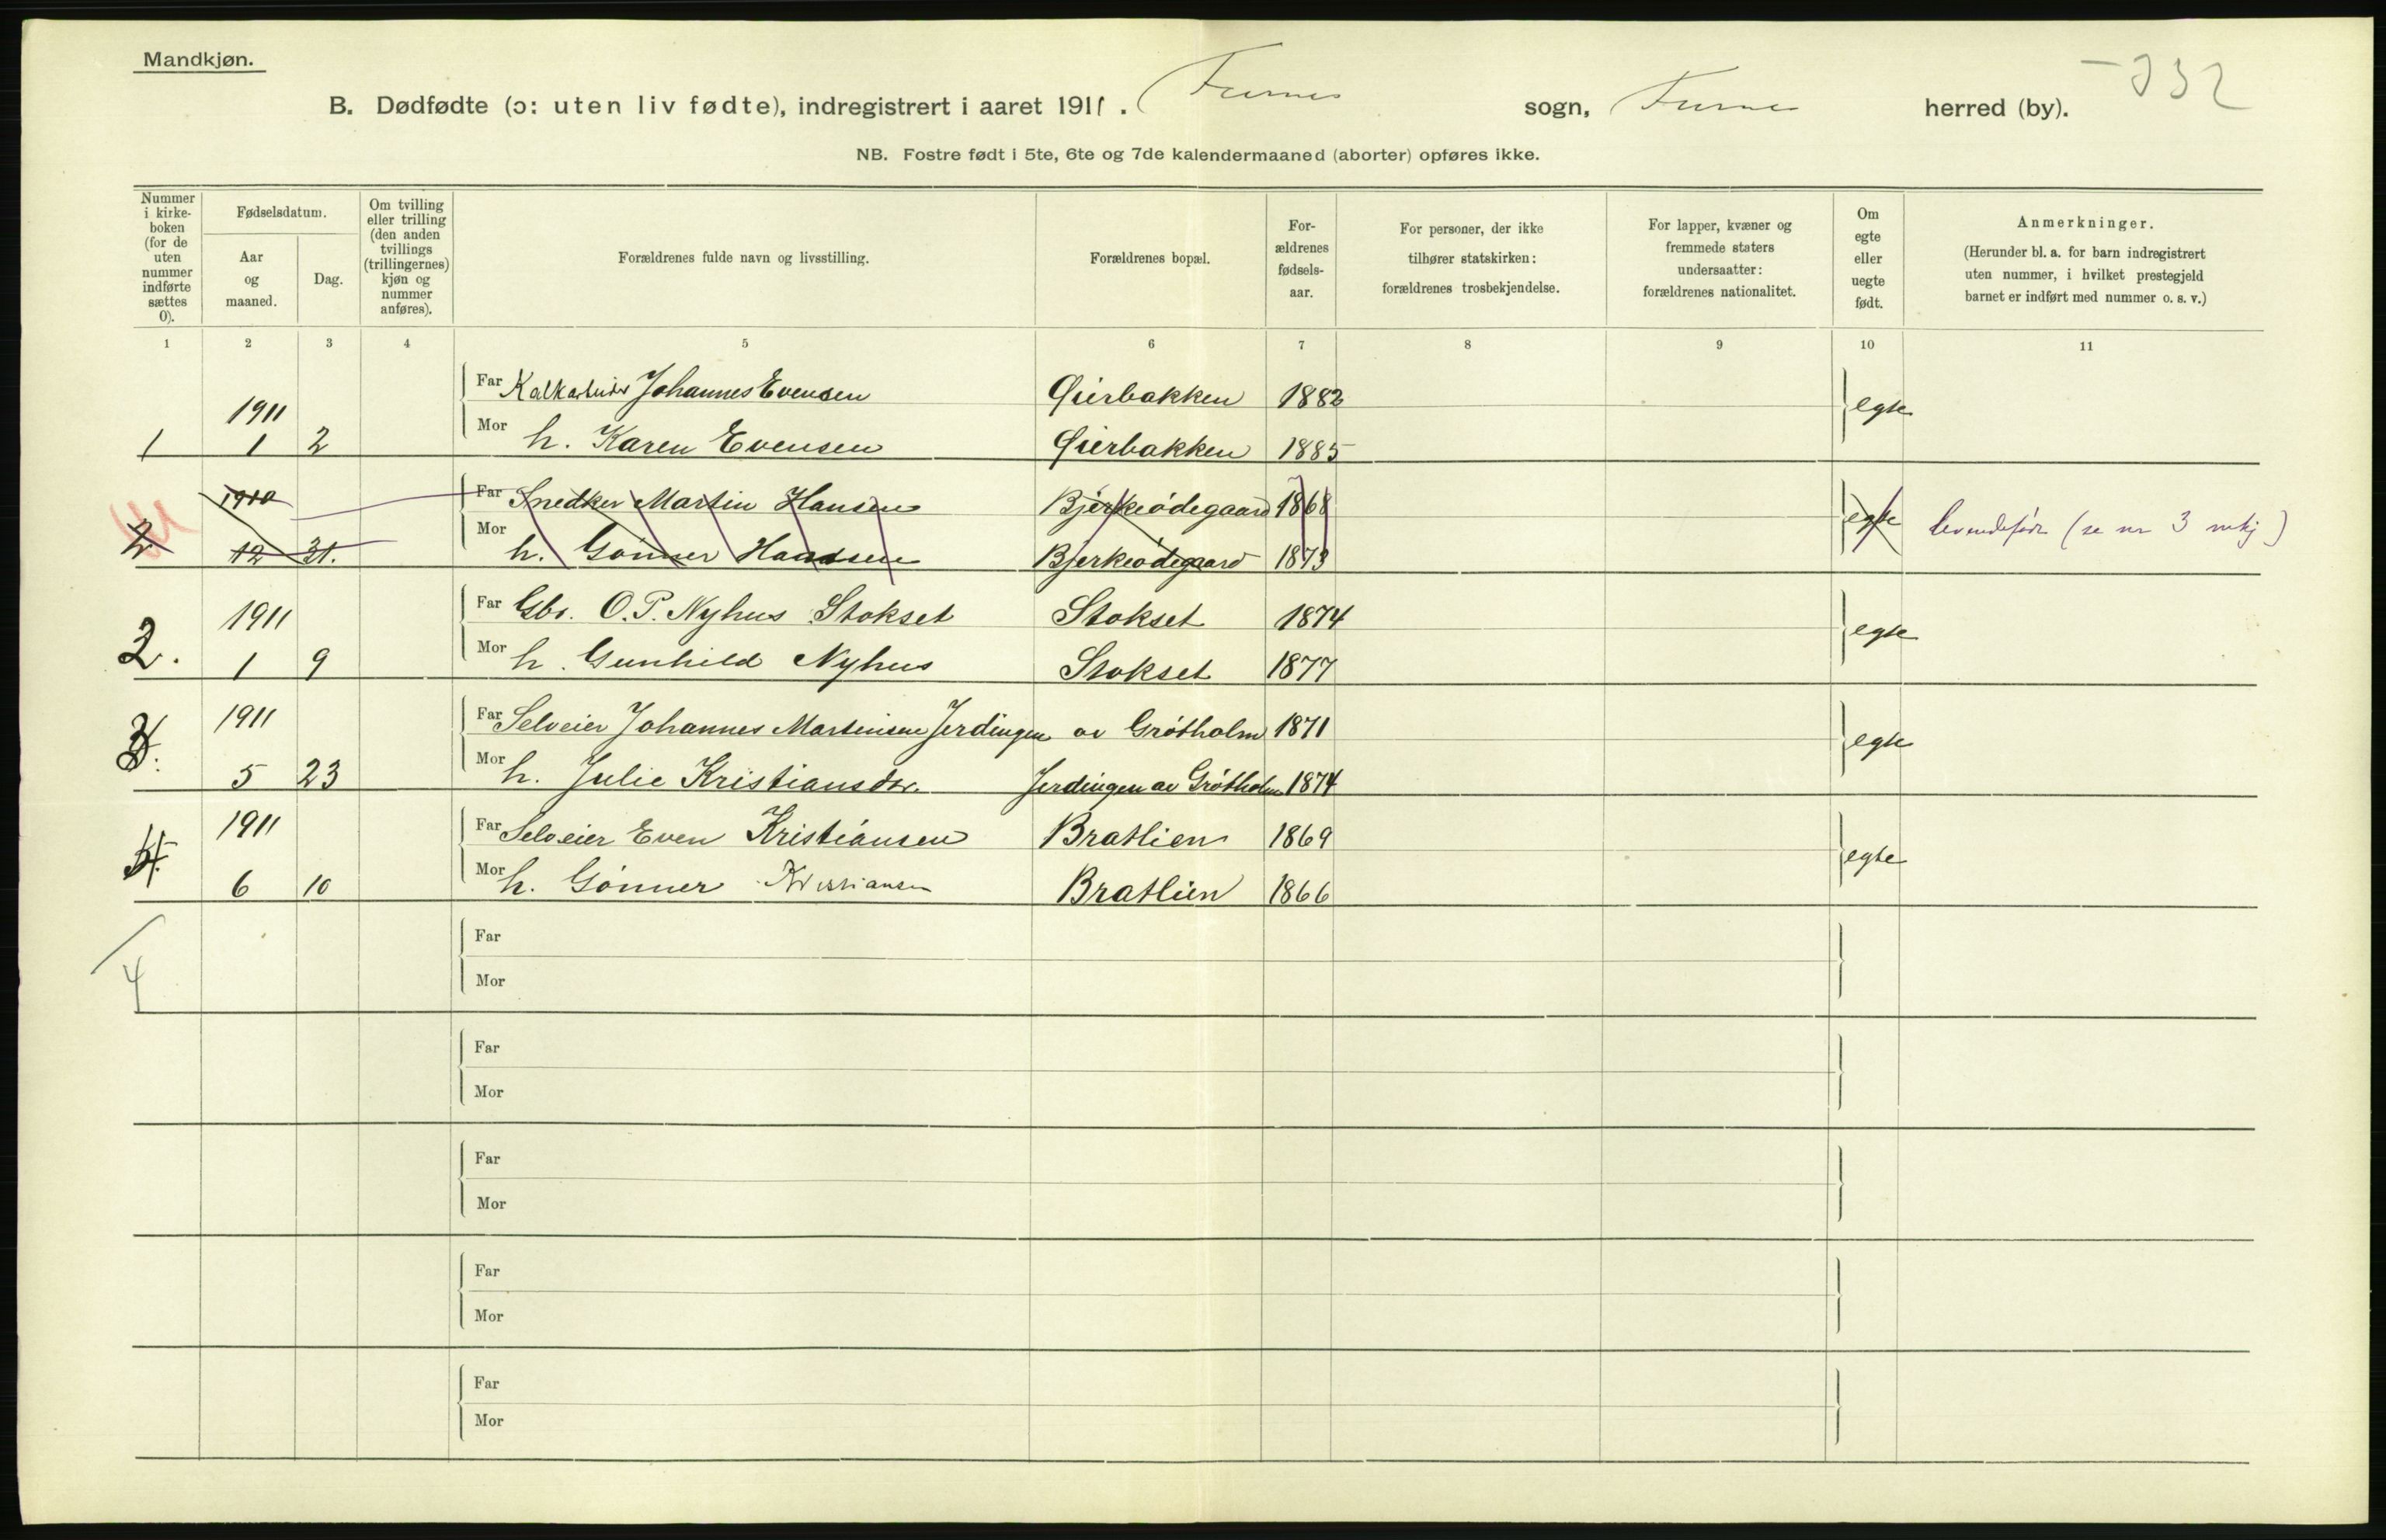 Mandkjøn.
B. Dødfødte (ɔ: uten liv fødte), indregistrert i aaret 1911. Furnes sogn, Furnes herred (by).
NB. Fostre født i 5te, 6te og 7de kalendermaaned (aborter) opføres ikke.
Nummer i kirke-boken (for de uten nummer indførte sættes 0).
Fødselsdatum.
Aar og maaned.
Dag.
Om tvilling eller trilling (den anden tvillings (trillingernes) kjøn og nummer anføres).
Forældrenes fulde navn og livsstilling.
Forældrenes bopæl.
For-ældrenes fødsels-aar.
For personer, der ikke tilhører statskirken: forældrenes trosbekjendelse.
For lapper, kvæner og fremmede staters undersaatter: forældrenes nationalitet.
Om egte eller uegte født.
Anmerkninger.
(Herunder bl. a. for barn indregistrert uten nummer, i hvilket prestegjeld barnet er indført med nummer o. s. v.)
1 2 3 4 5 6 7 8 9 10 11
1911 Far Kalkarbeider Johannes Evensen Gierbakken 1882 egte
1 1 2 Mor h. Karen Evensen Gierbakken 1885
1910 Far Snedker Martin Hansen Bjerkeødegaard 1868 egte levendefødt (se nr 3 mkj)
2 12 31. Mor h. Gönner Hansen Bjerkeødegaard 1873
1911 Far Gbr. O. P. Nyhus Stokset Stokset 1874 egte
2. 1 9 Mor h. Gunhild Nyhus Stokset 1877
1911 Far Selveier Johannes Martinsen Jerdingen av Grøtholm 1871 egte
3. 5 23 Mor h. Julie Kristiansdr. Jerdingen av Grøtholm 1874
1911 Far Selveier Even Kristiansen Bratlien 1869 egte
4. 6 10 Mor h. Gönner Kristiansen Bratlien 1866
Far
4
Mor
Far
Mor
Far
Mor
Far
Mor
Far
Mor